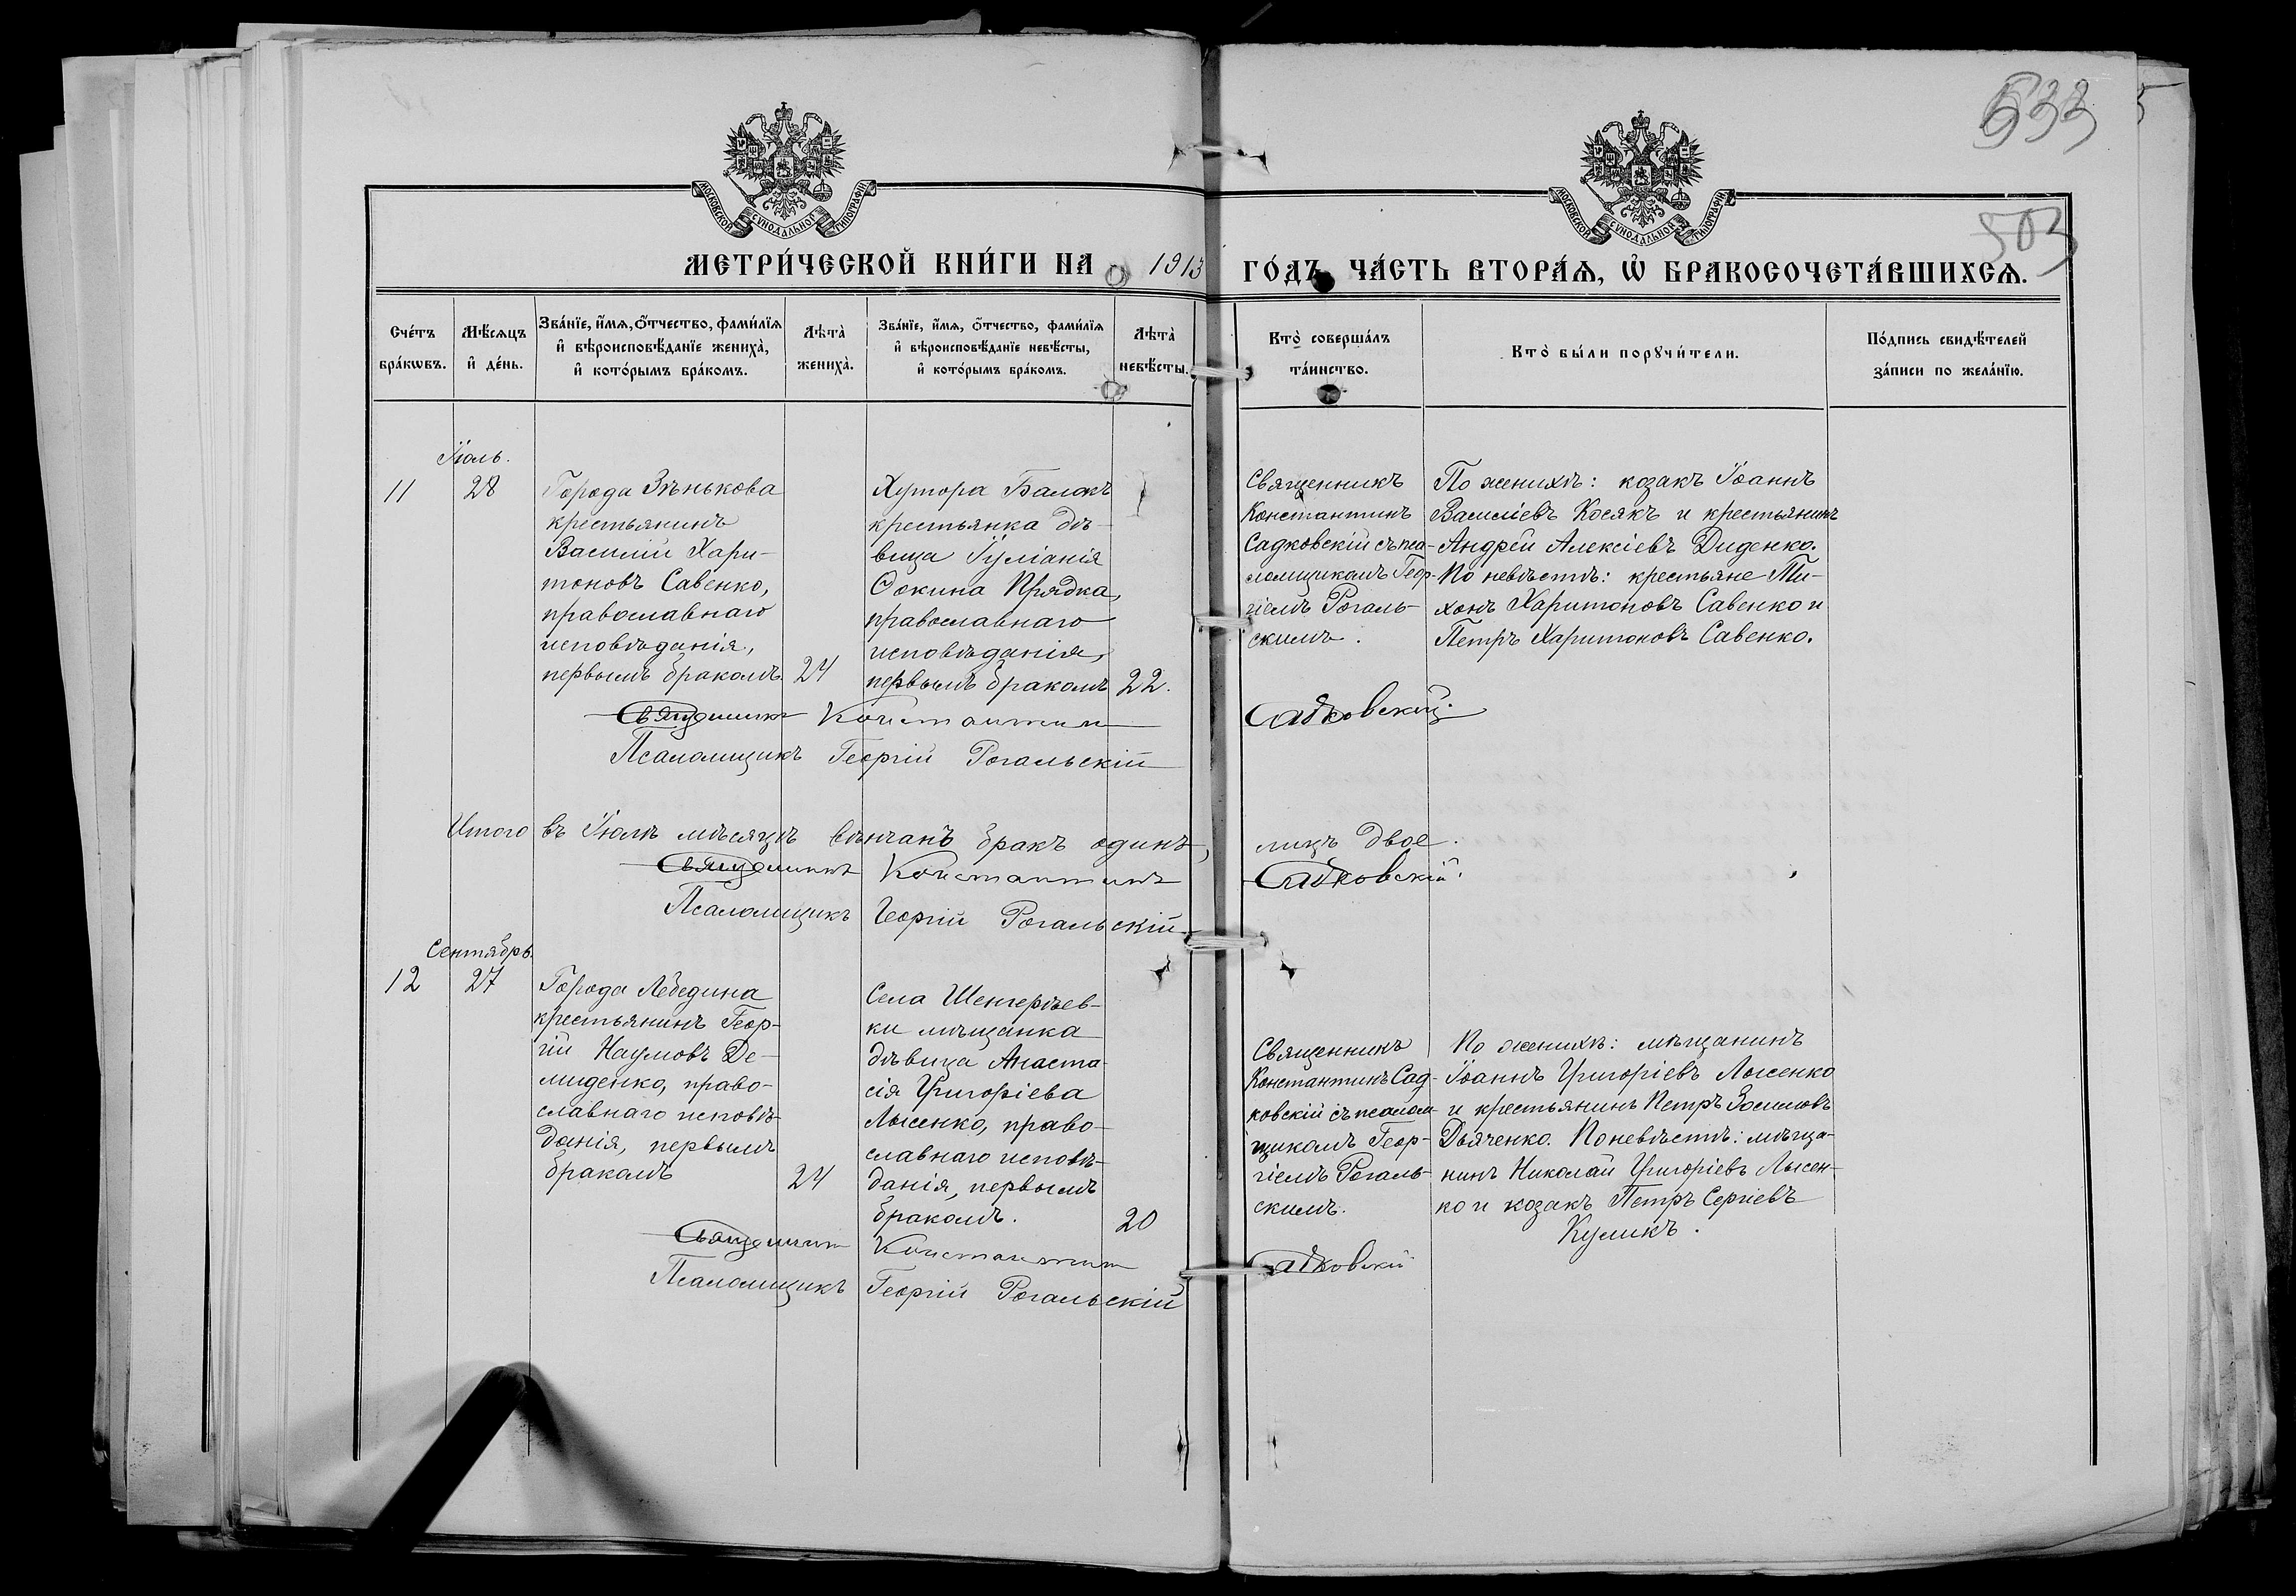 533
503
МОСКОВСКОЙ СѴНОДАЛЬНОЙ ТИПОГРАФІИ
МОСКОВСКОЙ СѴНОДАЛЬНОЙ ТИПОГРАФІИ
МЕТРИ́ЧЕСКОЙ КНИ́ГИ НА 1913 ГО́ДЪ, ЧА́СТЬ ВТОРА́Ѧ, Ѡ҆ БРАКОСОЧЕТА́ВШИХСѦ.
Сче́тъ
бра́кѡвъ.
Мѣ́сяцъ
и҆ де́нь.
Зва́нїе, и҆́мѧ, ѻ҆́тчество, фами́лїѧ
и҆ вѣроисповѣ́данїе жениха̀,
и҆ кото́рымъ бра́комъ.
Лѣта̀
жениха̀.
Зва́нїе, и҆́мѧ, ѻ҆́тчество, фами́лїѧ
и҆ вѣроисповѣ́данїе невѣ́сты,
и҆ кото́рымъ бра́комъ.
Лѣта̀
невѣ́сты.
Кто̀ соверша́лъ
та́инство.
Кто̀ бы́ли порꙋчи́тели.
По́дпись свидѣ́телей
за́писи по жела́нїю.
Іюль.
11
28
Города Зѣнькова
крестьянинъ
Василій Хари-
тоновъ Савенко,
православнаго
исповѣданія,
первымъ бракомъ.
24
Хутора Балокъ
крестьянка дѣ-
вица Іуліанія
Ѳокина Прядка,
православнаго
исповѣданія,
первымъ бракомъ
22.
Священникъ
Константинъ
Садковскій съ пса-
ломщикомъ Геор-
гіемъ Рогаль-
скимъ.
По женихѣ: козакъ Іоаннъ
Василіевъ Косякъ и крестьянинъ
Андрей Алексіевъ Диденко.
По невѣстѣ: крестьяне Ти-
хонъ Харитоновъ Савенко и
Петръ Харитоновъ Савенко.
Священникъ Константинъ Садковскій.
Псаломщикъ Георгій Рогальскій
Итого въ Іюлѣ мѣсяцѣ вѣнчанъ бракъ одинъ, лицъ двое.
Священникъ Константинъ Садковскій.
Псаломщикъ Георгій Рогальскій
Сентябрь.
12
27
Города Лебедина
крестьянинъ Геор-
гій Наумовъ Де-
миденко, право-
славнаго исповѣ-
данія, первымъ
бракомъ
24
Села Шенгеріев-
ки мѣщанка
дѣвица Анаста-
сія Григоріева
Лысенко, право-
славнаго исповѣ-
данія, первымъ
бракомъ.
20
Священникъ
Константинъ Сад-
ковскій съ псалом-
щикомъ Геор-
гіемъ Рогаль-
скимъ.
По женихѣ: мѣщанинъ
Іоаннъ Григоріевъ Лысенко
и крестьянинъ Петръ Зосимовъ
Дьяченко. По невѣстѣ: мѣща-
нинъ Николай Григоріевъ Лысен-
ко и козакъ Петръ Сергіевъ
Куликъ.
Священникъ Константинъ Садковскій
Псаломщикъ Георгій Рогальскій